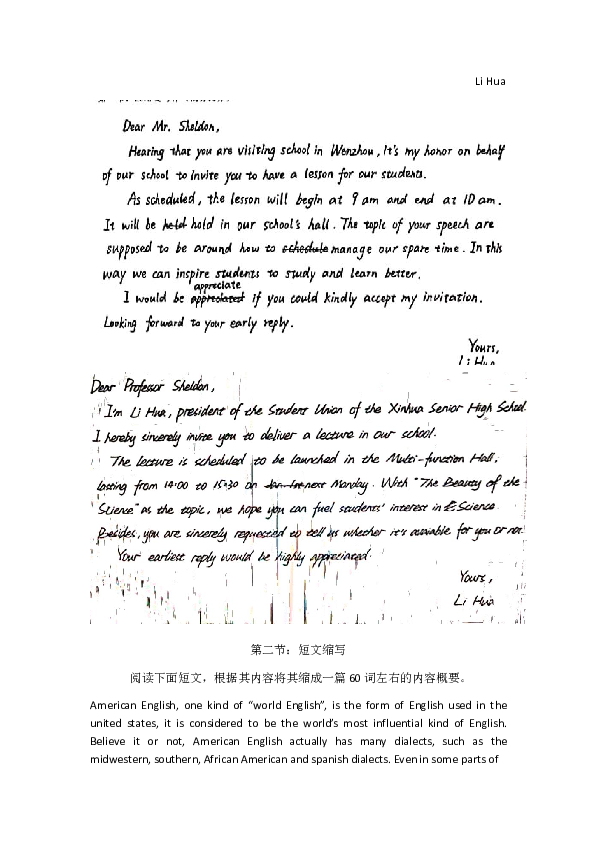 Li Hua
Dear Mr. Sheldon,
Hearing that you are visiting school in Wenzhou, it's my honor on behalf
of our school to invite you to have a lesson for our students.
As scheduled, the lesson will begin at 9 am and end at 10 am.
It will be held hold in our school's hall. The topic of your speech are
supposed to be around how to schedule manage our spare time. In this
way we can inspire students to study and learn better.
appreciate
I would be appreciated if you could kindly accept my invitation.
Looking forward to your early reply.
Yours,
Li Hua
Dear Professor Sheldon,
I'm Li Hua, president of the Student Union of the Xinhua Senior High School.
I hereby sincerely invite you to deliver a lecture in our school.
The lecture is scheduled to be launched in the Multi-function Hall,
lasting from 14:00 to 15:30 on next Monday. With "The Beauty of the
Science" as the topic, we hope you can fuel students' interest in Science.
Besides, you are sincerely requested to tell us whether it's available for you or not.
Your earliest reply would be highly appreciated.
Yours,
Li Hua
第二节：短文缩写
阅读下面短文，根据其内容将其缩成一篇 60 词左右的内容概要。
American English, one kind of “world English”, is the form of English used in the
united states, it is considered to be the world’s most influential kind of English.
Believe it or not, American English actually has many dialects, such as the
midwestern, southern, African American and spanish dialects. Even in some parts of